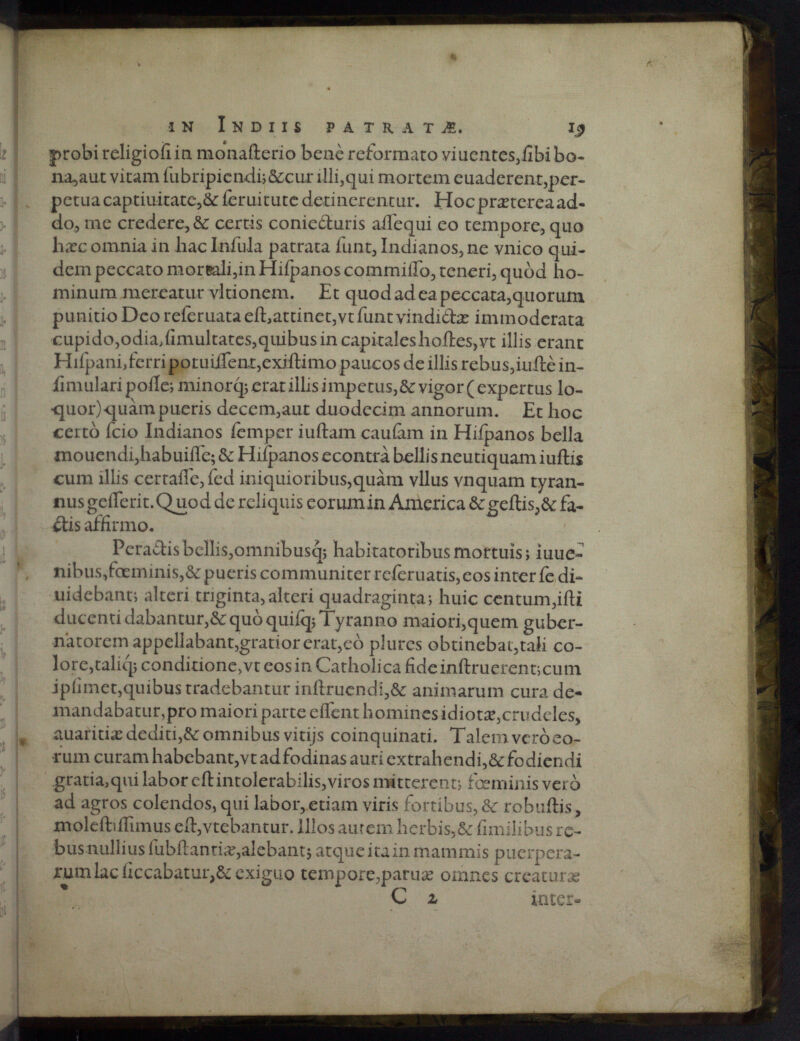 IN INDIIS PATRATÆ. 19
probi religiosi in monasterio benè reformato viuentes, sibi bo-
na, aut vitam subripiendi; & cur illi, qui mortem euaderent, per-
petua captiuitate, & seruitute detinerentur. Hoc præterea ad-
do, me credere, & certis coniecturis assequi eo tempore, quo
hæc omnia in hac Insula patrata sunt, Indianos, ne vnico qui-
dem peccato mortali, in Hispanos commisso, teneri, quòd ho-
minum mereatur vltionem. Et quod ad ea peccata, quorum
punitio Deo reseruata est, attinet, vt sunt vindictæ immoderata
cupido, odia, simultates, quibus in capitales hostes, vt illis erant
Hispani, ferri potuissent, existimo paucos de illis rebus, iustè in-
simulari posse; minorq; erat illis impetus, & vigor (expertus lo-
quor) quàm pueris decem, aut duodecim annorum. Et hoc
certò scio Indianos semper iustam causam in Hispanos bella
mouendi, habuisse; & Hispanos econtrà bellis neutiquam iustis
cum illis certasse, sed iniquioribus, quàm vllus vnquam tyran-
nus gesserit. Quod de reliquis eorum in America & gestis, & fa-
ctis affirmo.
Peractis bellis, omnibusq; habitatoribus mortuis; iuue-
nibus, fœminis, & pueris communiter reseruatis, eos inter se di-
uidebant; alteri triginta, alteri quadraginta; huic centum, isti
ducenti dabantur, & quò quisq; Tyranno maiori, quem guber-
natorem appellabant, gratior erat, eò plures obtinebat, tali co-
lore, taliq; conditione, vt eos in Catholica fide instruerent; cum
ipsimet, quibus tradebantur instruendi, & animarum cura de-
mandabatur, pro maiori parte essent homines idiotæ, crudeles,
auaritiæ dediti, & omnibus vitijs coinquinati. Talem verò eo-
rum curam habebant, vt ad fodinas auri extrahendi, & fodiendi
gratia, qui labor est intolerabilis, viros mitterent; fœminis verò
ad agros colendos, qui labor, etiam viris fortibus, & robustis,
molestissimus est, vtebantur. Illos autem herbis, & similibus re-
bus nullius substantiæ, alebant; atque ita in mammis puerpera-
rum lac siccabatur, & exiguo tempore, paruæ omnes creaturæ
C 2 inter-